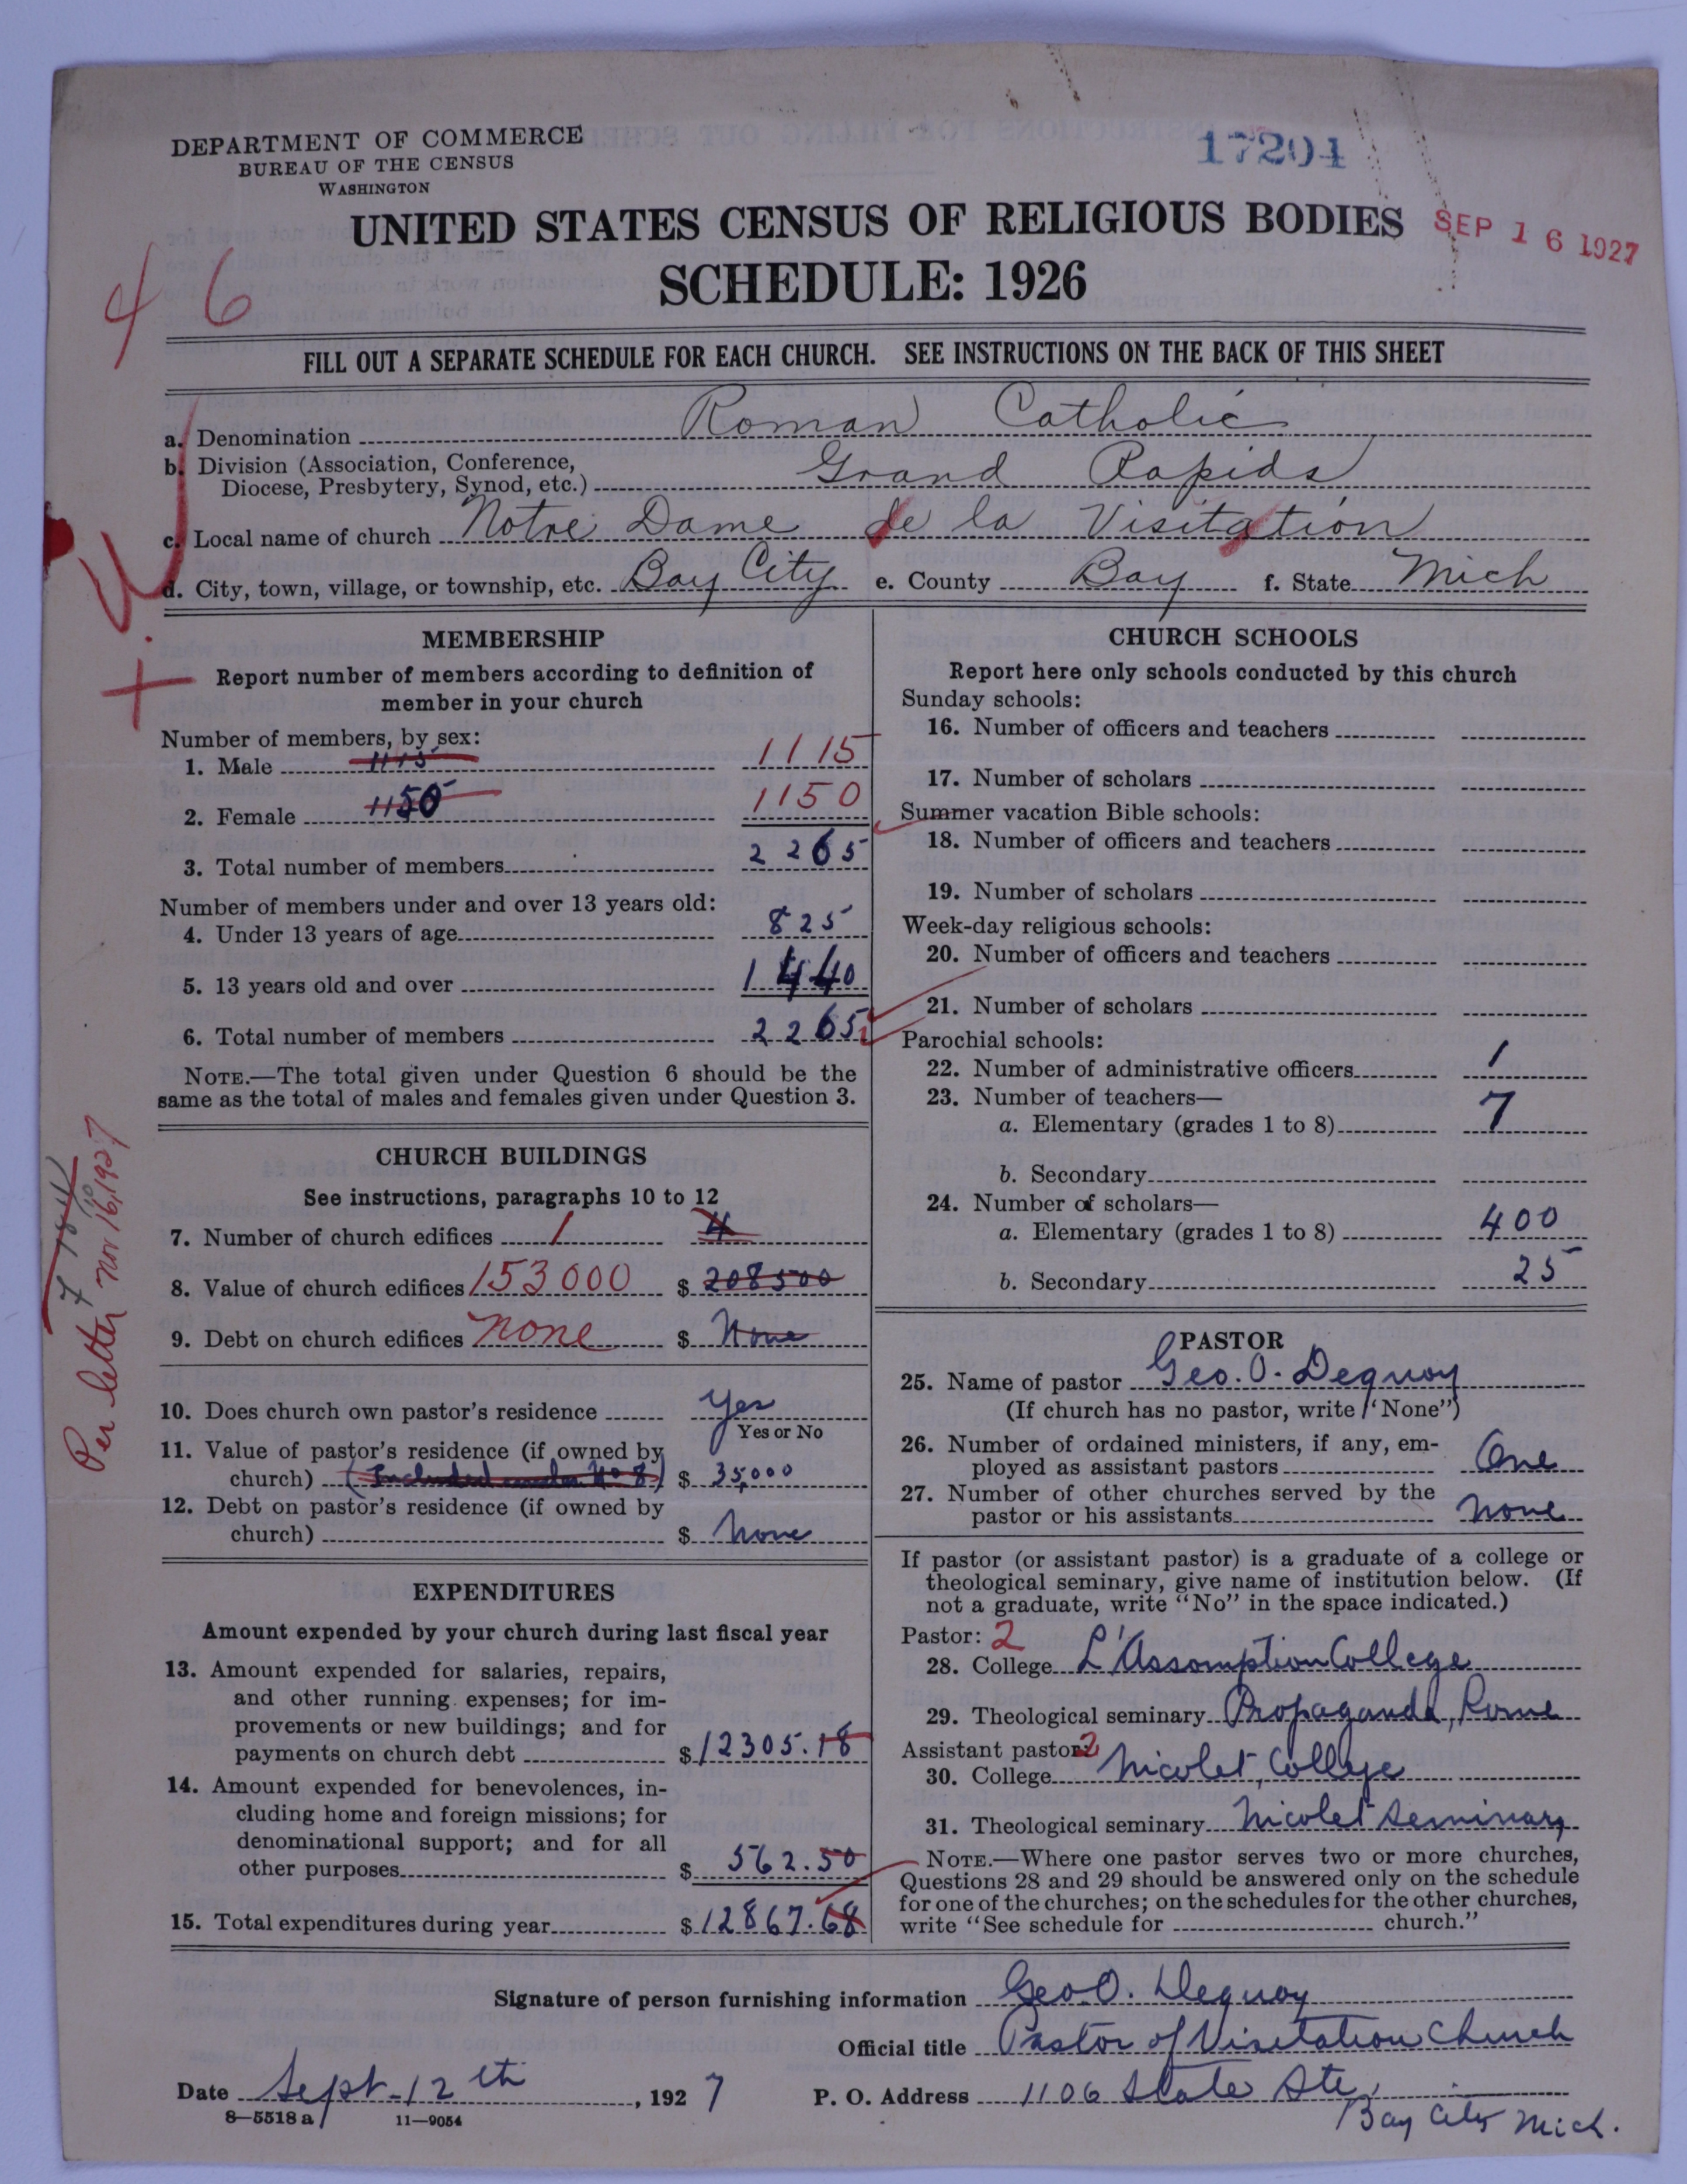 DEPARTMENT OF COMMERCE
BUREAU OF THE CENSUS
WASHINGTON
17204
UNITED STATES CENSUS OF RELIGIOUS BODIES
SEP 16 1927
SCHEDULE: 1926
46
FILL OUT A SEPARATE SCHEDULE FOR EACH CHURCH. SEE INSTRUCTIONS ON THE BACK OF THIS SHEET
a. Denomination Roman Catholic
b. Division (Association, Conference,
Diocese, Presbytery, Synod, etc.) Grand Rapids
c. Local name of church Notre Dame de la Visitation
d. City, town, village, or township, etc. Bay City e. County Bay f. State Mich
MEMBERSHIP
Report number of members according to definition of
member in your church
Number of members, by sex:
1. Male 1115 1115
2. Female 1150 1150
3. Total number of members 2265
Number of members under and over 13 years old:
4. Under 13 years of age 825
5. 13 years old and over 1440
6. Total number of members 2265
NOTE.—The total given under Question 6 should be the
same as the total of males and females given under Question 3.
CHURCH BUILDINGS
See instructions, paragraphs 10 to 12
7. Number of church edifices 1 4
8. Value of church edifices 153000 $ 208500
9. Debt on church edifices none $ None
10. Does church own pastor's residence Yes
Yes or No
11. Value of pastor's residence (if owned by
church) (Included under No 8) $ 35,000
12. Debt on pastor's residence (if owned by
church) $ None
Per letter Nov 16, 1927
EXPENDITURES
Amount expended by your church during last fiscal year
13. Amount expended for salaries, repairs,
and other running expenses; for im-
provements or new buildings; and for
payments on church debt $ 12305.18
14. Amount expended for benevolences, in-
cluding home and foreign missions; for
denominational support; and for all
other purposes $ 562.50
15. Total expenditures during year $ 12867.68
CHURCH SCHOOLS
Report here only schools conducted by this church
Sunday schools:
16. Number of officers and teachers
17. Number of scholars
Summer vacation Bible schools:
18. Number of officers and teachers
19. Number of scholars
Week-day religious schools:
20. Number of officers and teachers
21. Number of scholars
Parochial schools:
22. Number of administrative officers 1
23. Number of teachers—
a. Elementary (grades 1 to 8) 7
b. Secondary
24. Number of scholars—
a. Elementary (grades 1 to 8) 400
b. Secondary 25
PASTOR
25. Name of pastor Geo. O. Dequoy
(If church has no pastor, write "None")
26. Number of ordained ministers, if any, em-
ployed as assistant pastors One
27. Number of other churches served by the
pastor or his assistants none
If pastor (or assistant pastor) is a graduate of a college or
theological seminary, give name of institution below. (If
not a graduate, write "No" in the space indicated.)
Pastor: 2
28. College L'Assomption College
29. Theological seminary Propaganda, Rome
Assistant pastor: 2
30. College Nicolet College
31. Theological seminary Nicolet Seminary
NOTE.—Where one pastor serves two or more churches,
Questions 28 and 29 should be answered only on the schedule
for one of the churches; on the schedules for the other churches,
write "See schedule for church."
Signature of person furnishing information Geo O. Dequoy
Official title Pastor of Visitation Church
Date Sept 12th, 1927 P. O. Address 1106 State Ste,
Bay City Mich.
8—5518 a 11—9054